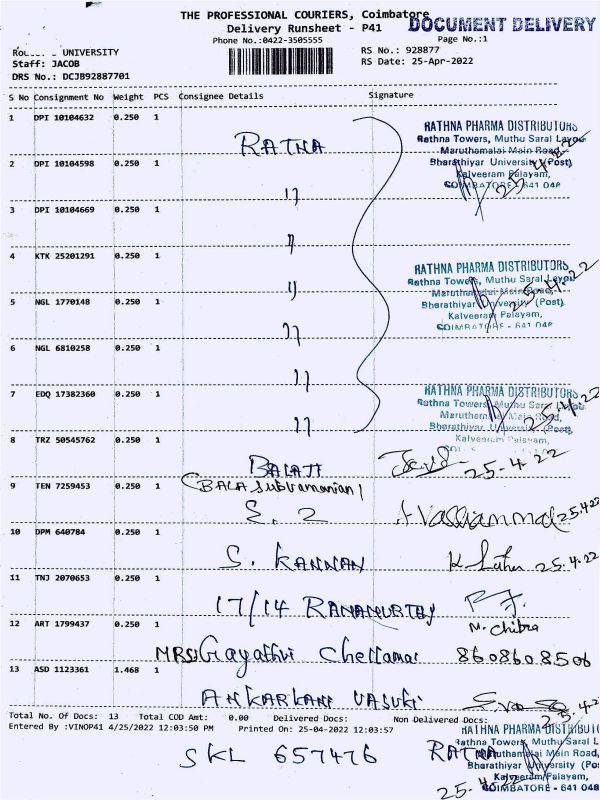 THE PROFESSIONAL COURIERS, Coimbatore
DOCUMENT DELIVERY
Delivery Runsheet - P41
Phone No.:0422-3505555
Page No.:1
UNIVERSITY
RS No.: 928877
Staff: JACOB
RS Date: 25-Apr-2022
DRS No.: DCJB92887701
S No Consignment No Weight PCS Consignee Details Signature
1 DPI 10104632 0.250 1
RATNA
RATHNA PHARMA DISTRIBUTORS
Rathna Towers, Muthu Saral Layou
Maruthamalai Main Road,
Bharathiyar University (Post)
Kalveeram Palayam,
COIMBATORE - 641 046
25.4.22
2 DPI 10104598 0.250 1
11
3 DPI 10104669 0.250 1
11
4 KTK 25201291 0.250 1
11
RATHNA PHARMA DISTRIBUTORS
Rathna Towers, Muthu Saral Layou
Maruthamalai Main Road,
Bharathiyar University (Post)
Kalveeram Palayam,
COIMBATORE - 641 046
25.4.22
5 NGL 1770148 0.250 1
11
6 NGL 6810258 0.250 1
11
7 EDQ 17382360 0.250 1
11
RATHNA PHARMA DISTRIBUTORS
Rathna Towers, Muthu Saral Layou
Maruthamalai Main Road,
Bharathiyar University (Post)
Kalveeram Palayam,
25.4.22
8 TRZ 50545762 0.250 1
BALAJI
25-4-22
9 TEN 7259453 0.250 1
(BALA Subramanian)
S. 2
A Valliammal 25.4.22
10 DPM 640784 0.250 1
S. KANNAN
25.4.22
11 TNJ 2070653 0.250 1
17/14 RAMAMURTHY
12 ART 1799437 0.250 1
M. Chitra
MRS Gayathri Chellamai 8608608506
13 ASD 1123361 1.468 1
VASUKI
25.4.22
Total No. Of Docs: 13 Total COD Amt: 0.00 Delivered Docs: Non Delivered Docs:
Entered By :VINOP41 4/25/2022 12:03:50 PM Printed On: 25-04-2022 12:03:57
SKL 657476 RATNA
RATHNA PHARMA DISTRIBUT
Rathna Towers, Muthu Saral L
Maruthamalai Main Road,
Bharathiyar University (Pos
Kalveeram Palayam,
COIMBATORE - 641 046
25.4.22